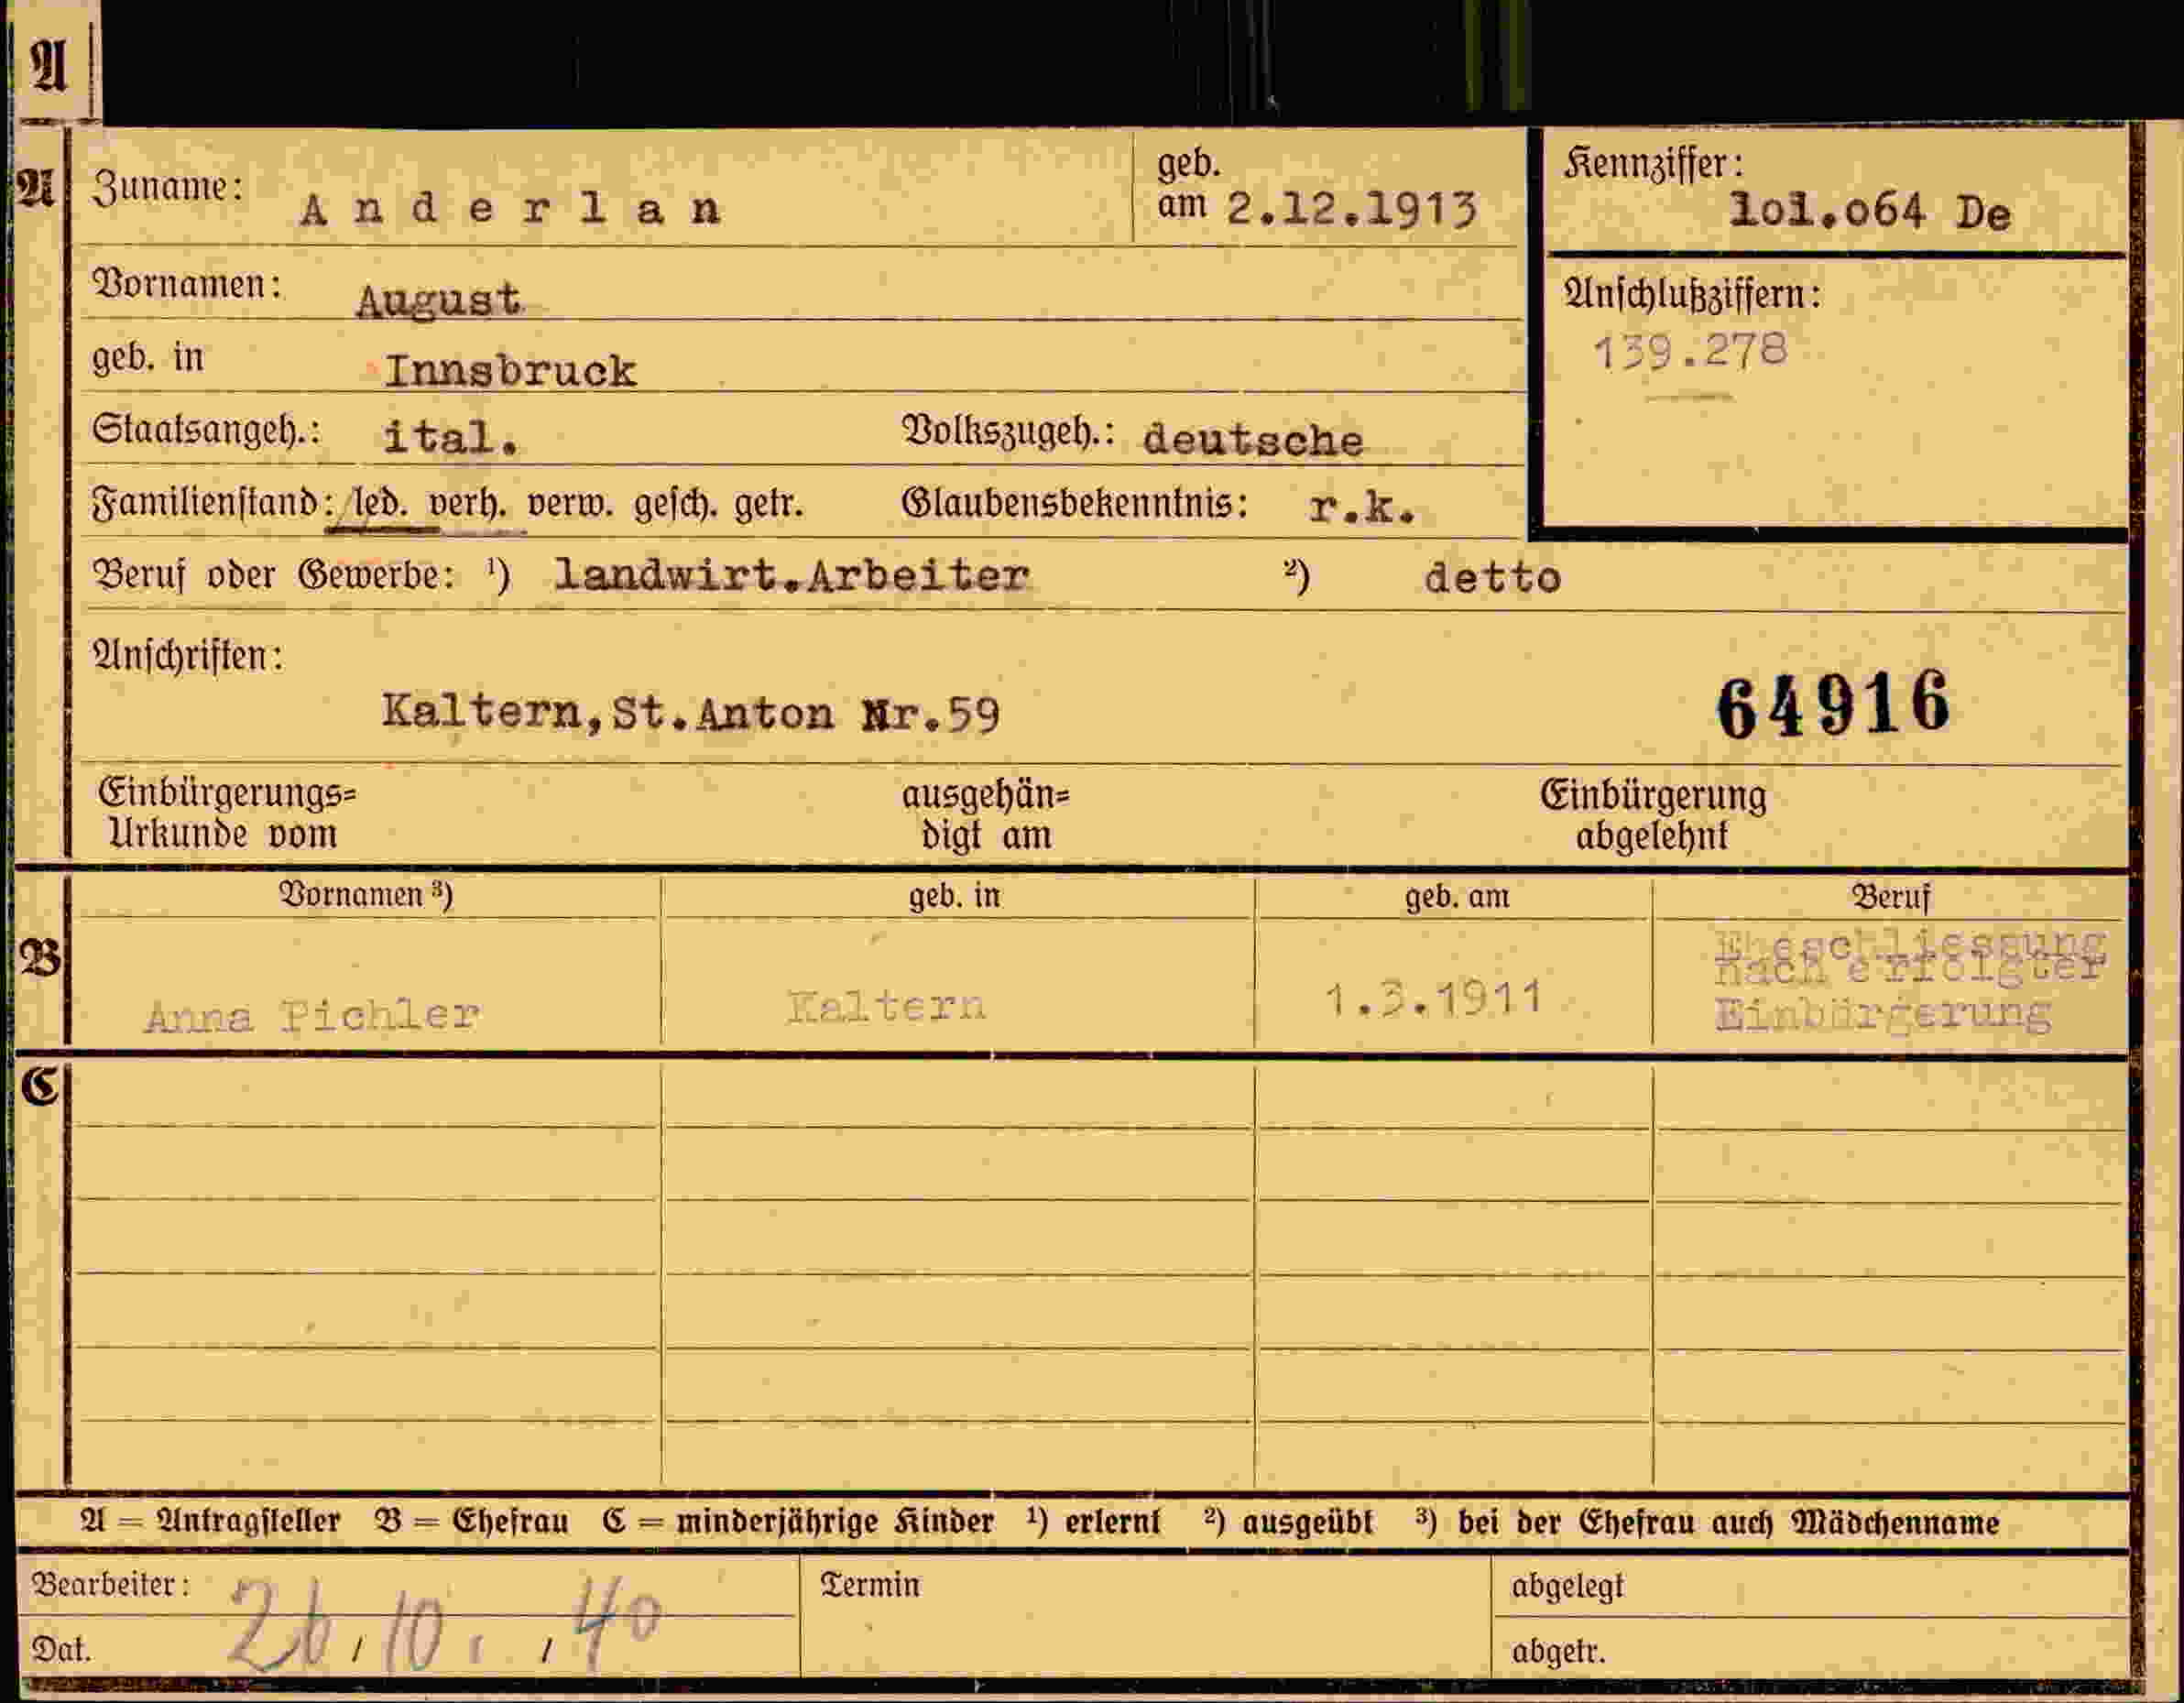 A
A
Zuname: Anderlan
geb.
am 2.12.1913
Kennziffer:
lol.o64 De
Vornamen: August
Anschlußziffern:
139.278
geb. in Innsbruck
Staatsangeh.: ital. Volkszugeh.: deutsche
Familienstand: led. verh. verw. gesch. getr. Glaubensbekenntnis: r.k.
Beruf oder Gewerbe: ¹) landwirt.Arbeiter ²) detto
Anschriften:
Kaltern,St.Anton Nr.59
64916
Einbürgerungs=
Urkunde vom
ausgehän=
digt am
Einbürgerung
abgelehnt
B
Vornamen ³) geb. in geb. am Beruf
Anna Pichler Kaltern 1.3.1911
Eheschliessung
nach erfolgter
Einbürgerung
C
A = Antragsteller B = Ehefrau C = minderjährige Kinder ¹) erlernt ²) ausgeübt ³) bei der Ehefrau auch Mädchenname
Bearbeiter: Termin abgelegt
Dat. 26/10. /40 abgetr.